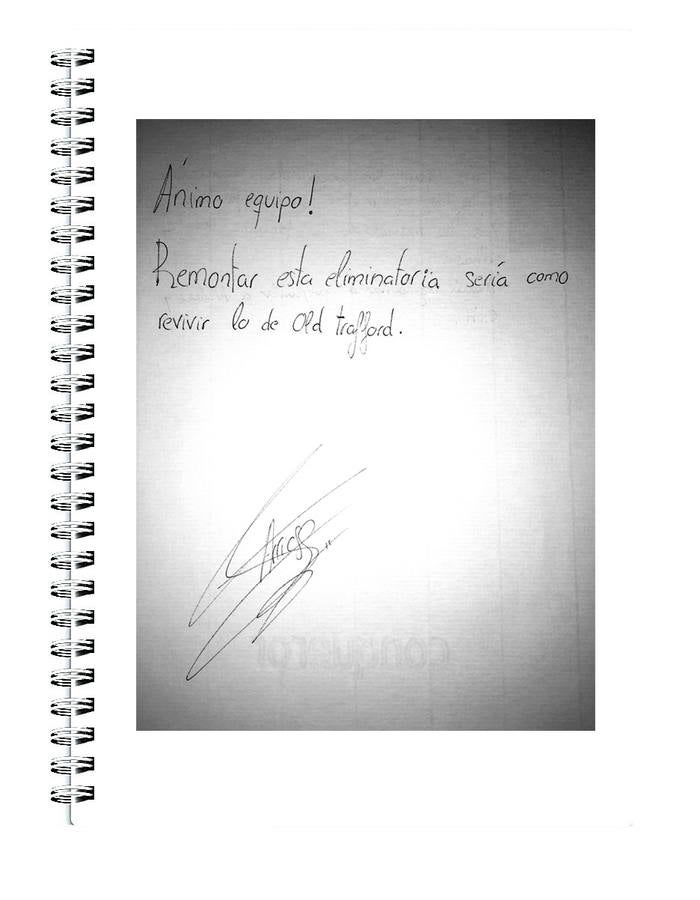 Ánimo equipo!
Remontar esta eliminatoria sería como
revivir lo de Old trafford.
conqueror